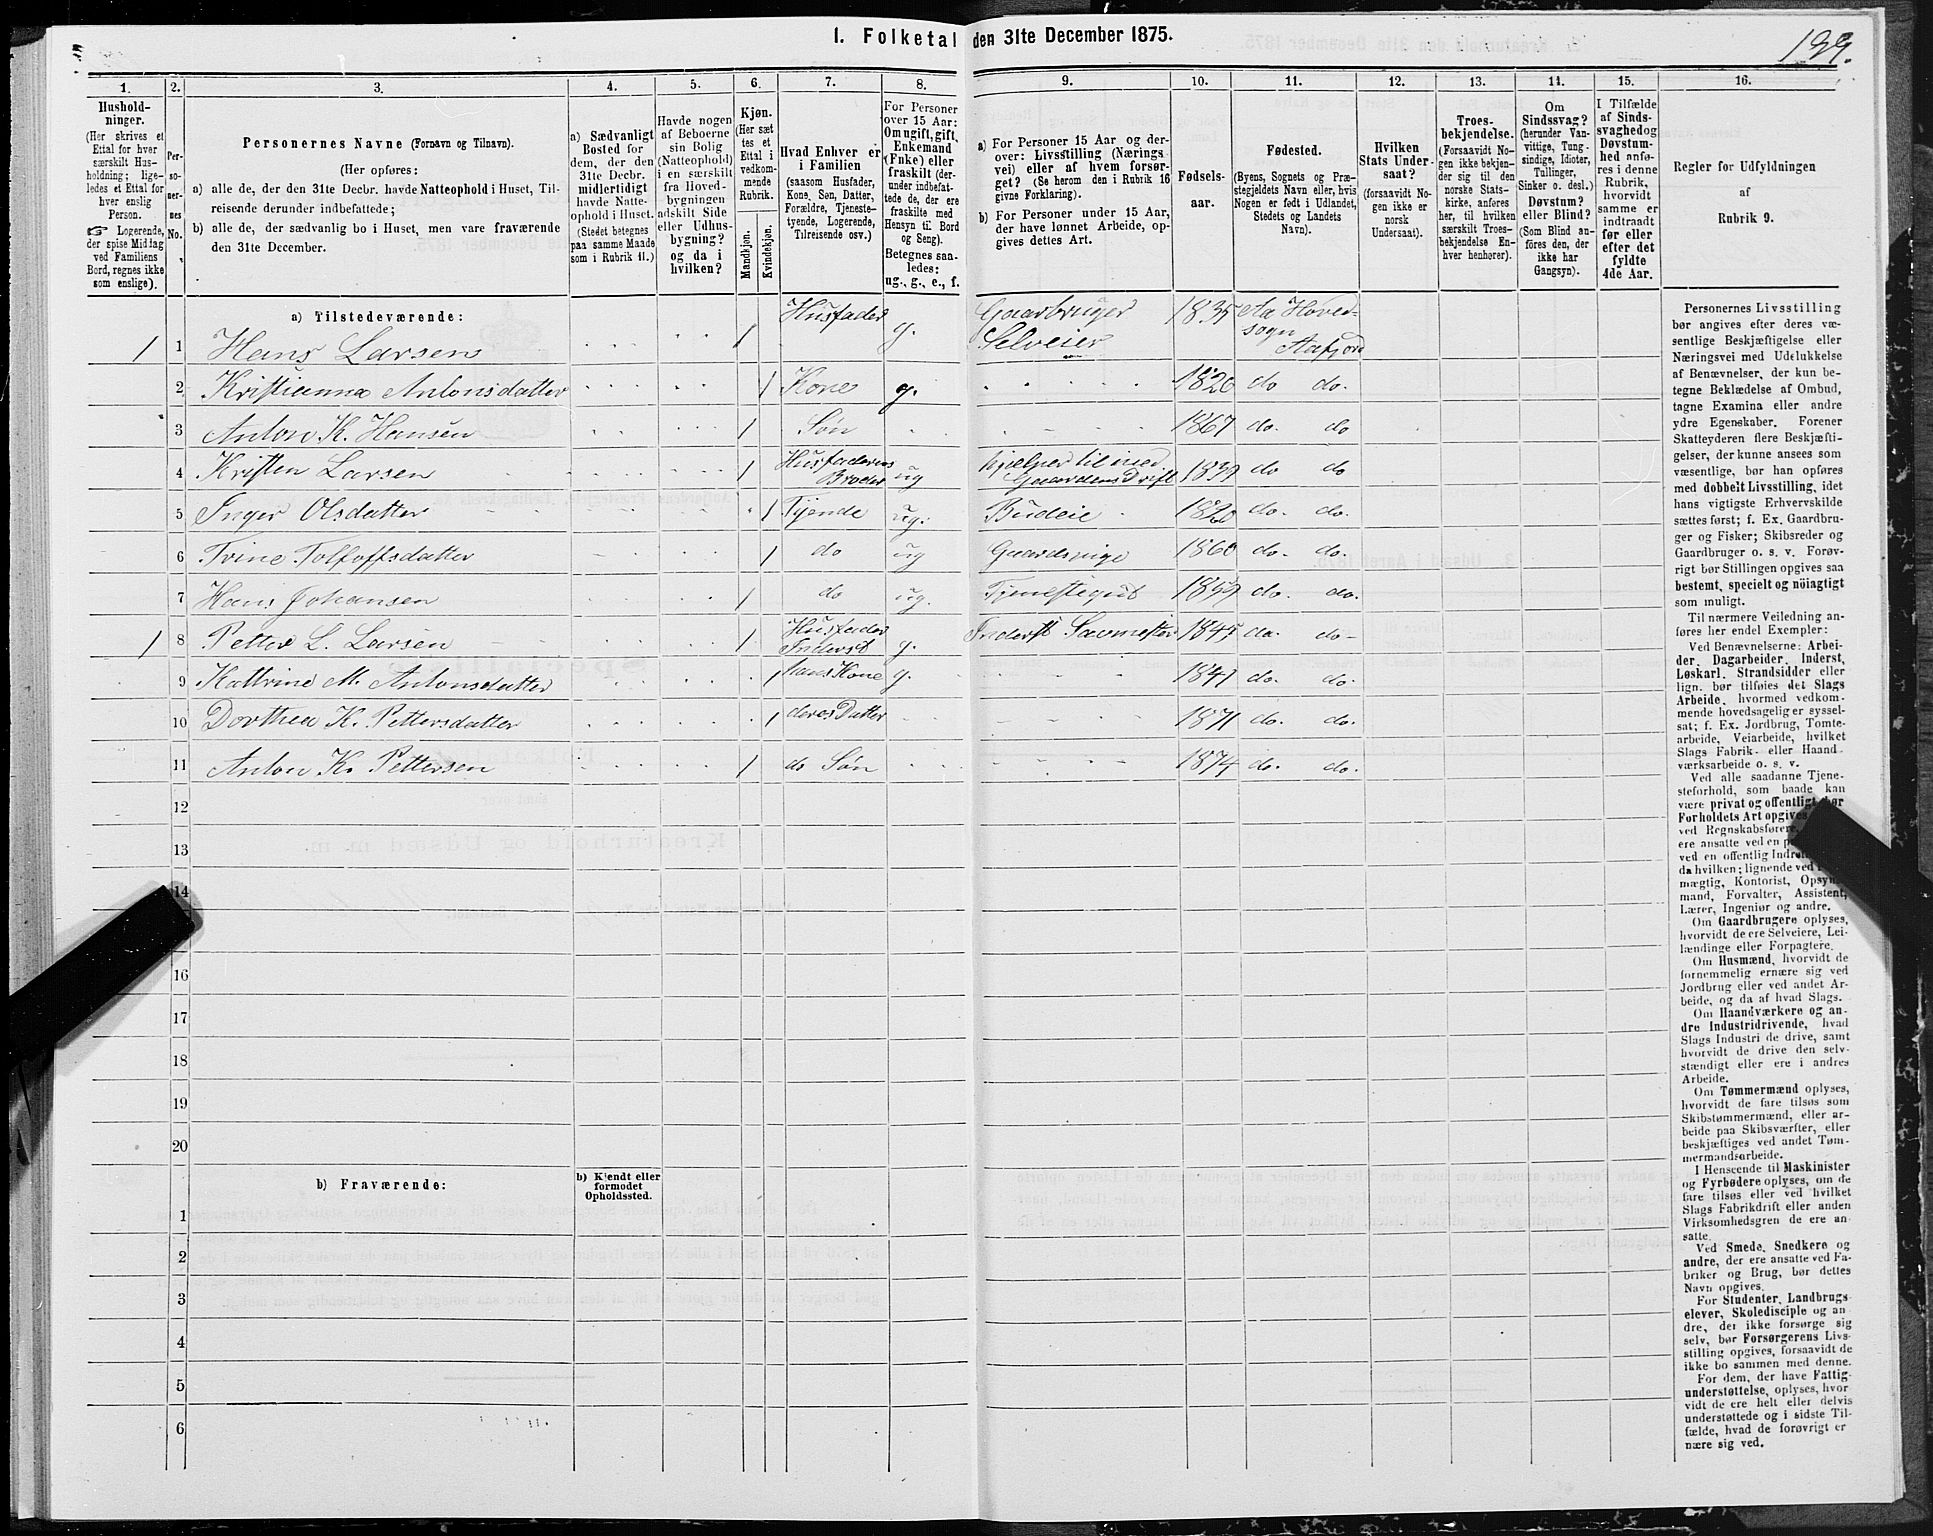 I. Folketal den 31te December 1875.
1.
2.
3.
4.
5.
6.
7.
8.
9.
10.
11.
12.
13.
14.
15.
16.
Hushold-
ninger.
(Her skrives et
Ettal for hver
særskilt Hus-
holdning; lige-
ledes et Ettal for
hver enslig
Person.
☞ Logerende,
der spise Middag
ved Familiens
Bord, regnes ikke
som enslige).
Per-
so-
ner-
nes
No.
Personernes Navne (Fornavn og Tilnavn).
(Her opføres:
a) alle de, der den 31te Decbr. havde Natteophold i Huset, Til-
reisende derunder indbefattede;
b) alle de, der sædvanlig bo i Huset, men vare fraværende
den 31te December.
a) Sædvanligt
Bosted for
dem, der den
31te Decbr.
midlertidigt
havde Natte-
ophold i Huset.
(Stedet betegnes
paa samme Maade
som i Rubrik 11.)
Havde nogen
af Beboerne
sin Bolig
(Natteophold)
i en særskilt
fra Hoved-
bygningen
adskilt Side
eller Udhus-
bygning?
og da i
hvilken?
Kjøn.
(Her sæt
tes et
Ettal i
vedkom-
mende
Rubrik.
Mandkjøn.
Kvindekjøn.
Hvad Enhver er
i Familien
(saasom Husfader,
Kone, Søn, Datter,
Forældre, Tjeneste-
tyende, Logerende,
Tilreisende osv.)
For Personer
over 15 Aar:
Om ugift, gift,
Enkemand
(Enke) eller
fraskilt (der-
under indbefat-
tede de, der ere
fraskilte med
Hensyn til Bord
og Seng).
Betegnes saa-
ledes:
ug., g., e., f.
a) For Personer 15 Aar og der-
over: Livsstilling (Nærings
vei) eller af hvem forsør-
get? (Se herom den i Rubrik 16
givne Forklaring).
b) For Personer under 15 Aar,
der have lønnet Arbeide, op-
gives dettes Art.
Fødsels-
aar.
Fødested.
(Byens, Sognets og Præ-
stegjeldets Navn eller, hvis
Nogen er født i Udlandet,
Stedets og Landets
Navn).
Hvilken
Stats Under-
saat?
(forsaavidt No-
gen ikke er
norsk
Undersaat).
Troes-
bekjendelse.
(Forsaavidt No
gen ikke bekjen-
der sig til den
norske Stats-
kirke, anføres
her, til hvilken
særskilt Troes-
bekjendelse En-
hver henhører).
Om
Sindssvag?
(herunder Van-
vittige, Tung-
sindige, Idioter,
Tullinger,
Sinker o. desl.)
Døvstum?
eller Blind?
(Som Blind an-
føres den, der
ikke har
Gangsyn).
I Tilfælde
af Sinds-
svaghed og
Døvstum-
hed anfø-
res i denne
Rubrik,
hvorvidt
samme er
indtraadt
før eller
efter det
fyldte
4de Aar.
Regler for Udfyldningen
af
Rubrik 9.
a) Tilstedeværende:
1 1 Hans Larsen 1 Husfader g. Gaardbruger Selveier 1835 Aa Hoved-
sogn
Aafjord
2 Kristianna Antonsdatter 1 Kone g. 1820 do do.
3 Anton K. Hansen 1 Søn 1867 do. do
4 Kristen Larsen 1 Husfaderens Broder ug Hjelper til med Gaardens Drift 1839 do do
5 Inger Olsdatter 1 Tjende ug. Budeie 1820 do. do.
6 Trine Tolfoffsdatter 1 do ug Gaardspige 1860 do. do.
7 Hans Johansen 1 do ug. Tjenestegut 1859 do. do.
1 8 Petter L. Larsen 1 Husfader Inderst g. Inderst Savmester 1845 do. do-
9 Kattrine M. Antonsdatter 1 hans Kone g. 1841 do. do.
10 Dorthea K. Pettersdatter 1 deres Datter 1871 do. do.
11 Anton K. Pettersen 1 do Søn 1874 do. do.
12
13
14
16
17
18
19
20
b) Fraværende:
b) Kjendt eller
formodet
Opholdssted.
1
2
3
4
5
6
Personernes Livsstilling
bør angives efter deres væ-
sentlige Beskjæftigelse eller
Næringsvei med Udelukkelse
af Benævnelser, der kun be-
tegne Beklædelse af Ombud,
tagne Examina eller andre
ydre Egenskaber. Forener
Skatteyderen flere Beskjæfti-
gelser, der kunne ansees som
væsentlige, bør han opføres
med dobbelt Livsstilling, idet
hans vigtigste Erhvervskilde
sættes først; f. Ex. Gaardbru-
ger og Fisker; Skibsreder og
Gaardbruger o. s. v. Forøv-
rigt bør Stillingen opgives saa
bestemt, specielt og nöiagtigt
som muligt.
Til nærmere Veiledning an-
føres her endel Exempler:
Ved Benævnelserne: Arbei-
der, Dagarbeider, Inderst,
Løskarl, Strandsidder eller
lign. bør tilføies det Slags
Arbeide, hvormed vedkom-
mende hovedsagelig er syssel-
sat; f. Ex. Jordbrug, Tomte-
arbeide, Veiarbeide, hvilket
Slags Fabrik- eller Haand
værksarbeide o. s. v.
Ved alle saadanne Tjene-
steforhold, som baade kan
være privat og offentligt, bør
Forholdets Art opgives
ved Regnskabsførere,
ere ansatte ved en
ved en offentlig
da hvilken; lignende ved
mægtig, Kontorist, Opsyns-
mand, Forvalter, Assistent,
Lærer, Ingeniør og andre.
Om Gaardbrugere oplyses,
hvorvidt de ere Selveiere, Lei-
lændinge eller Forpagtere.
Om Husmænd, hvorvidt de
fornemmelig ernære sig ved
Jordbrug eller ved andet Ar-
beide, og da af hvad Slags.
Om Haandværkere og an-
dre Industridrivende, hvad
Slags Industri de drive, samt
hvorvidt de drive den selv-
stændigt eller ere i andres
Arbeide.
Om Tømmermænd oplyses,
hvorvidt de fare tilsøs som
Skibstømmermænd, eller ar-
beide paa Skibsværfter, eller
beskjæftiges ved andet Tøm-
mermandsarbeide.
I Henseende til Maskinister
og Fyrbødere oplyses, om de
fare tilsøs eller ved hvilket
Slags Fabrikdrift eller anden
Virksomhedsgren de ere an-
satte.
Ved Smede, Snedkere og
andre, der ere ansatte ved Fa-
briker og Brug, bør dettes
Navn opgives.
For Studenter, Landbrugs-
elever, Skoledisciple og an
dre, der ikke forsørge sig
selv, bør Forsørgerens Livs-
stilling opgives, forsaavidt de
ikke bo sammen med denne.
For dem, der have Fattig-
understøttelse, oplyses, hvor-
vidt de ere helt eller delvis
understøttede og i sidste Til-
fælde, hvad de forøvrigt er
nære sig ved.